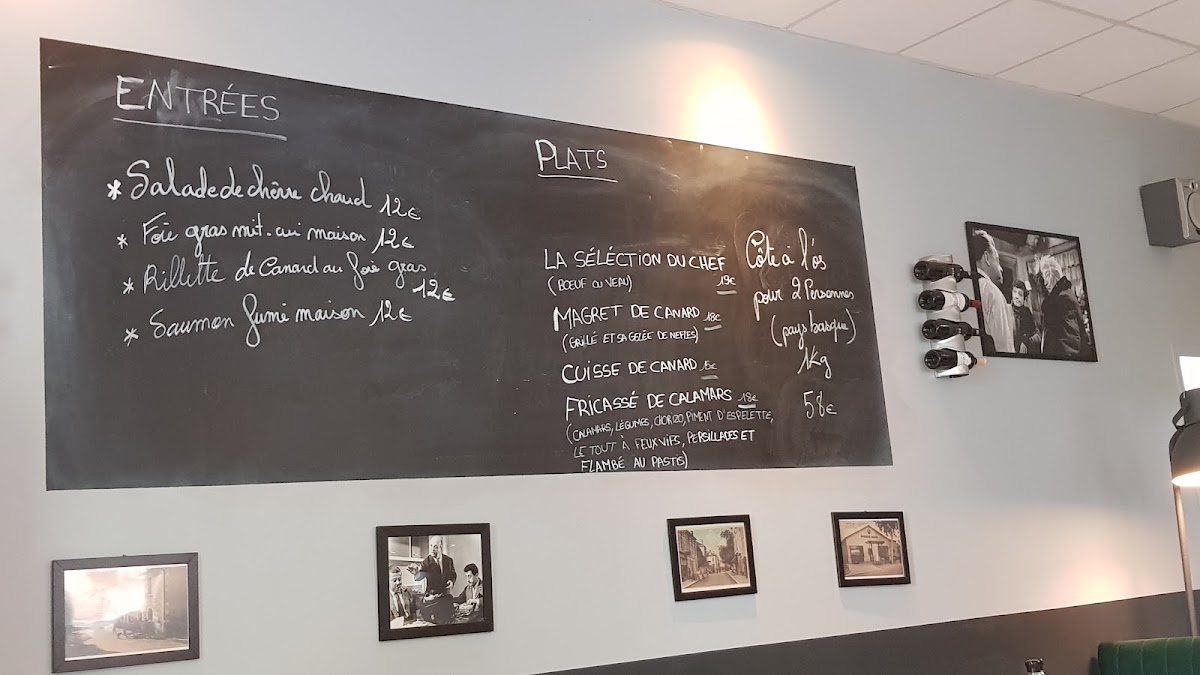 ENTRÉES
* Salade de chèvre chaud 12€
* Foie gras mit-cui maison 12€
* Rillette de Canard au foie gras
12€
* Saumon fumé maison 12€
PLATS
LA SÉLÉCTION DU CHEF
(BOEUF OU VEAU) 19€
MAGRET DE CANARD 18€
(GRILLÉ ET SA GELÉE DE NEFLES)
CUISSE DE CANARD 15€
FRICASSÉ DE CALAMARS 18€
(CALAMARS, LÉGUMES, CHORIZO, PIMENT D'ESPELETTE,
LE TOUT À FEUX VIFS, PERSILLADES ET
FLAMBÉ AU PASTIS)
Côte à l'os
pour 2 Personnes
(pays basque)
1Kg
58€